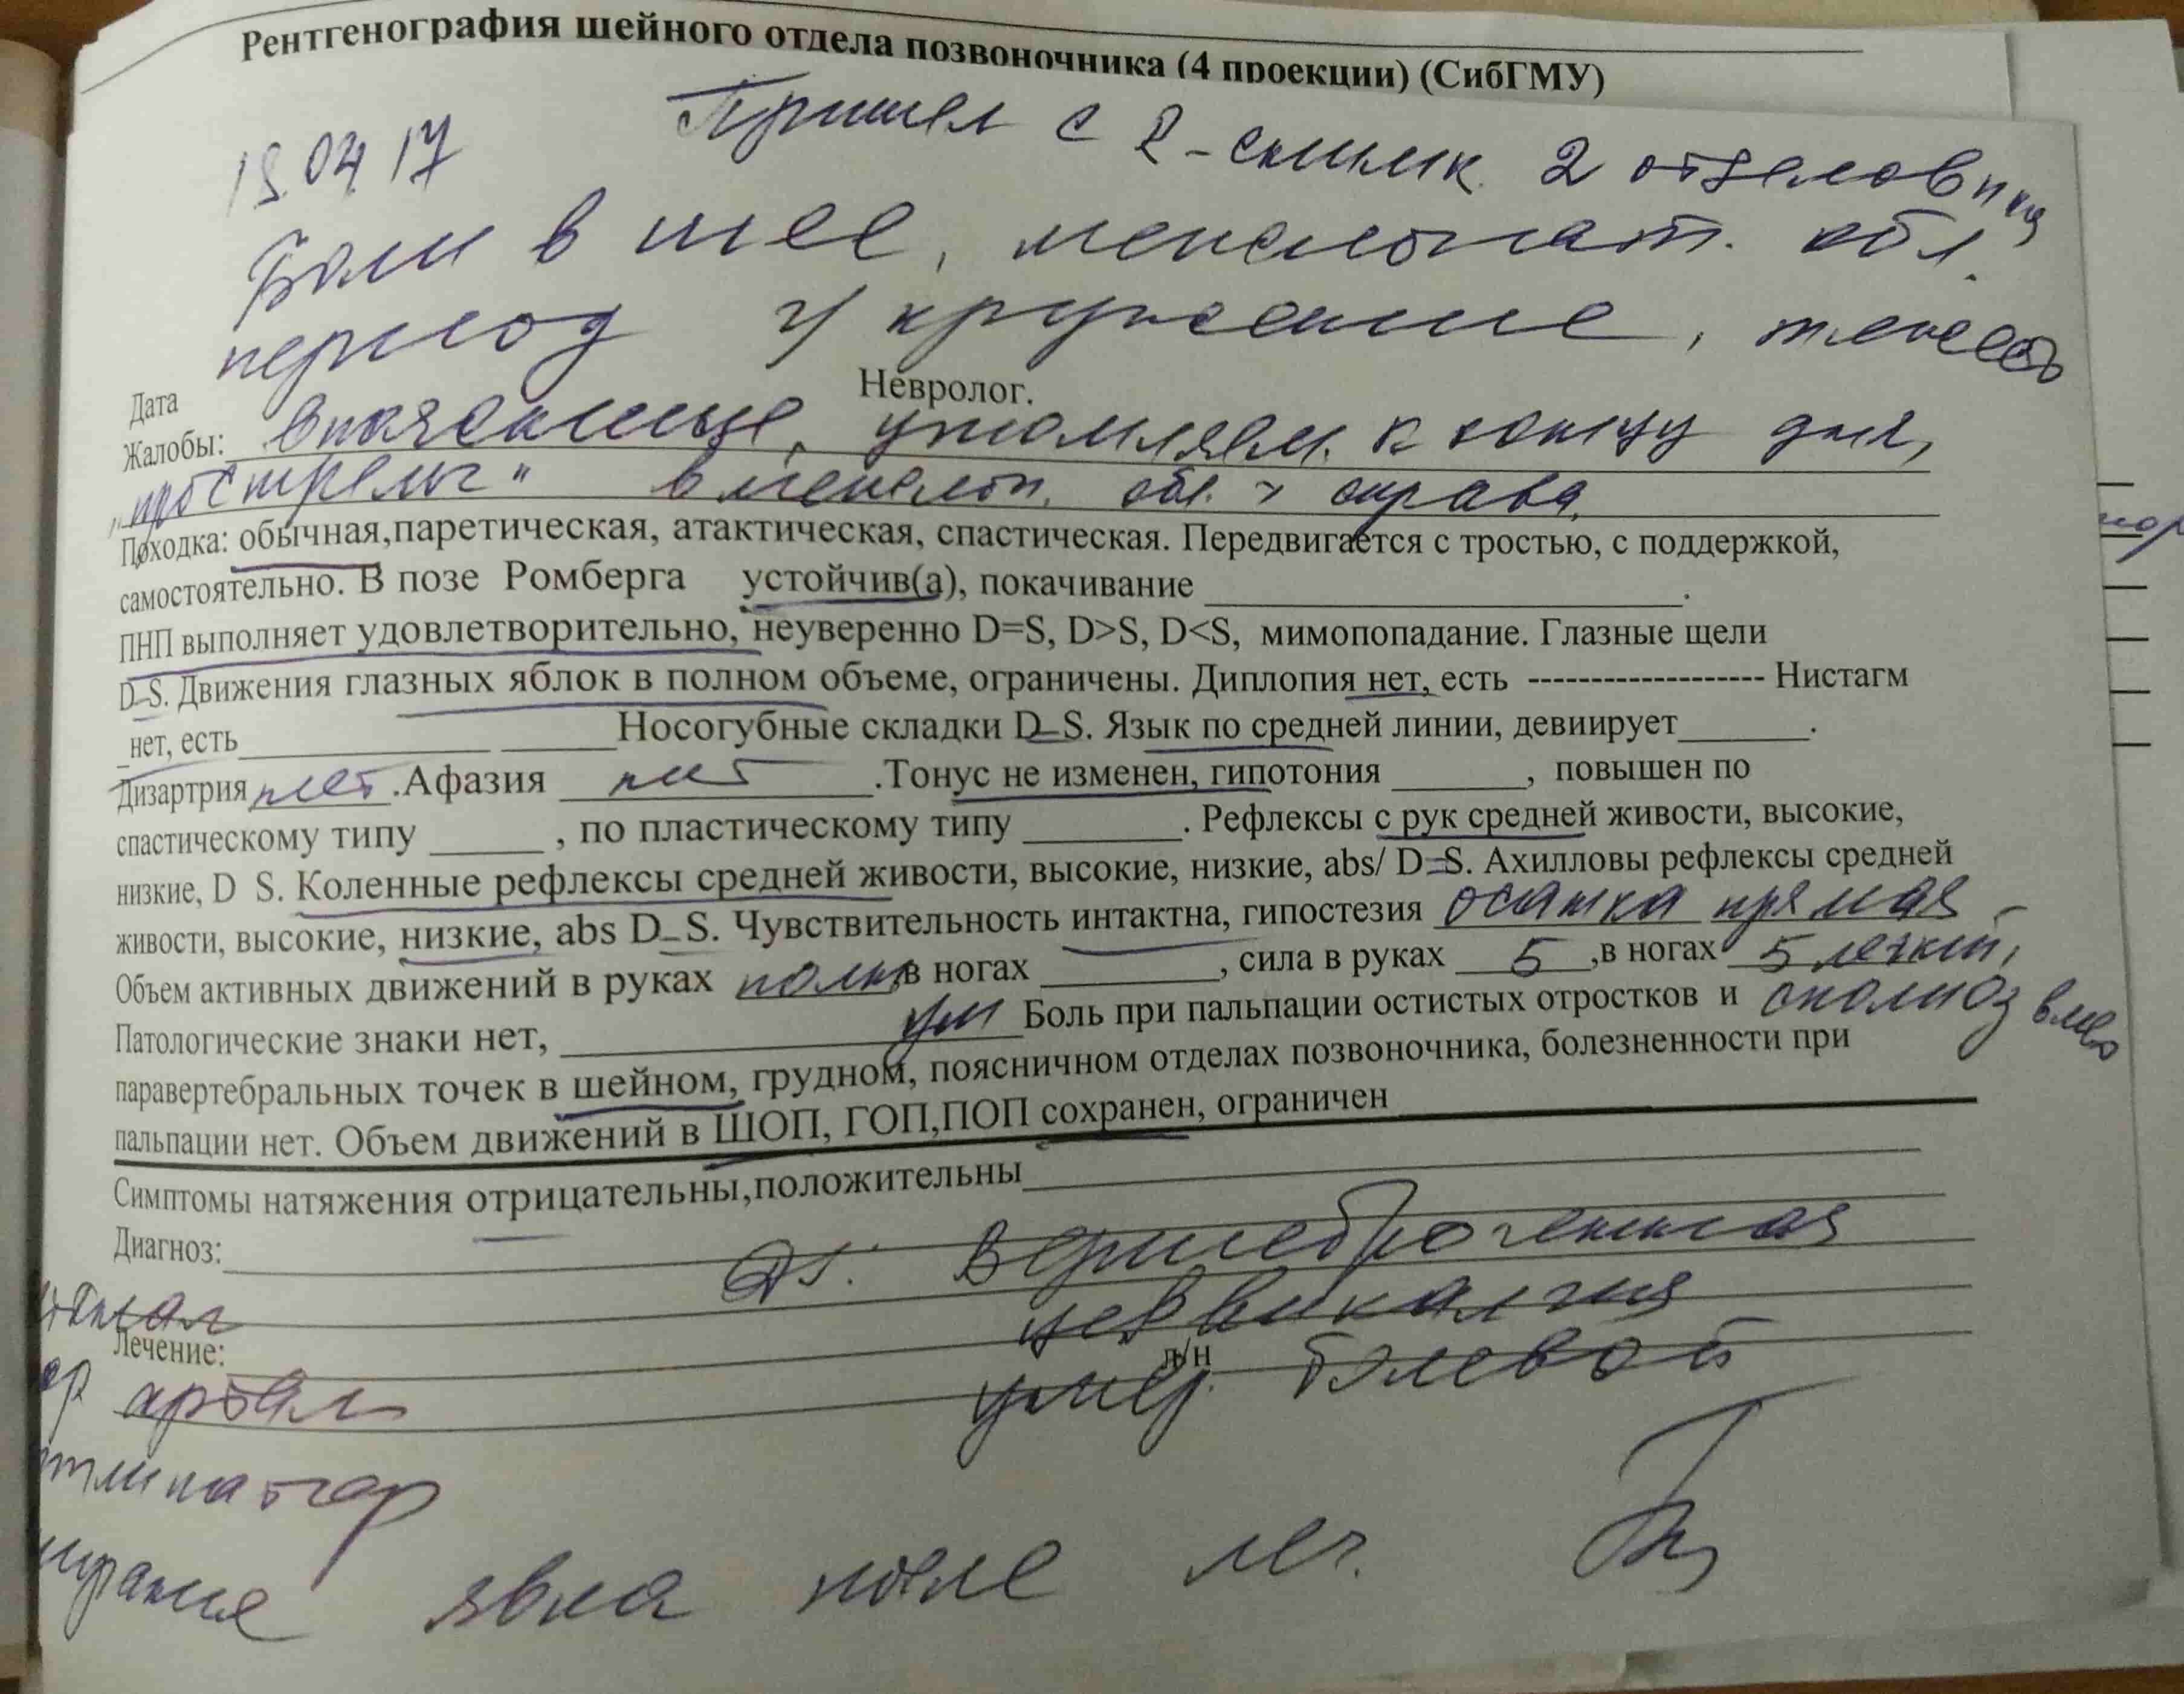 Рентгенография шейного отдела позвоночника (4 проекции) (СибГМУ)
Пришел с R-снимк. 2 отделов
18.04 17
Боли в шее, межлопат. обл.
период г/кружение, тяжесть
Дата
Невролог.
Жалобы: в пояснице, утомляем. к концу дня,
„прострелы" в межлоп. обл. > справа.
Походка: обычная,паретическая, атактическая, спастическая. Передвигается с тростью, с поддержкой,
самостоятельно. В позе Ромберга устойчив(а), покачивание .
ПНП выполняет удовлетворительно, неуверенно D=S, D>S, D<S, мимопопадание. Глазные щели
D=S. Движения глазных яблок в полном объеме, ограничены. Диплопия нет, есть ------------------- Нистагм
нет, есть Носогубные складки D=S. Язык по средней линии, девиирует .
Дизартрия нет .Афазия нет .Тонус не изменен, гипотония , повышен по
спастическому типу , по пластическому типу . Рефлексы с рук средней живости, высокие,
низкие, D S. Коленные рефлексы средней живости, высокие, низкие, abs/ D=S. Ахилловы рефлексы средней
живости, высокие, низкие, abs D=S. Чувствительность интактна, гипостезия осанка прямая -
Объем активных движений в руках полн в ногах , сила в руках 5 ,в ногах 5 легкий,
Патологические знаки нет, ум Боль при пальпации остистых отростков и сколиоз влево
паравертебральных точек в шейном, грудном, поясничном отделах позвоночника, болезненности при
пальпации нет. Объем движений в ШОП, ГОП,ПОП сохранен, ограничен
Симптомы натяжения отрицательны,положительны
Диагноз: Ds: Вертеброгенная
цервикалгия
Лечение: л/н
умер. болевой
явка после леч.